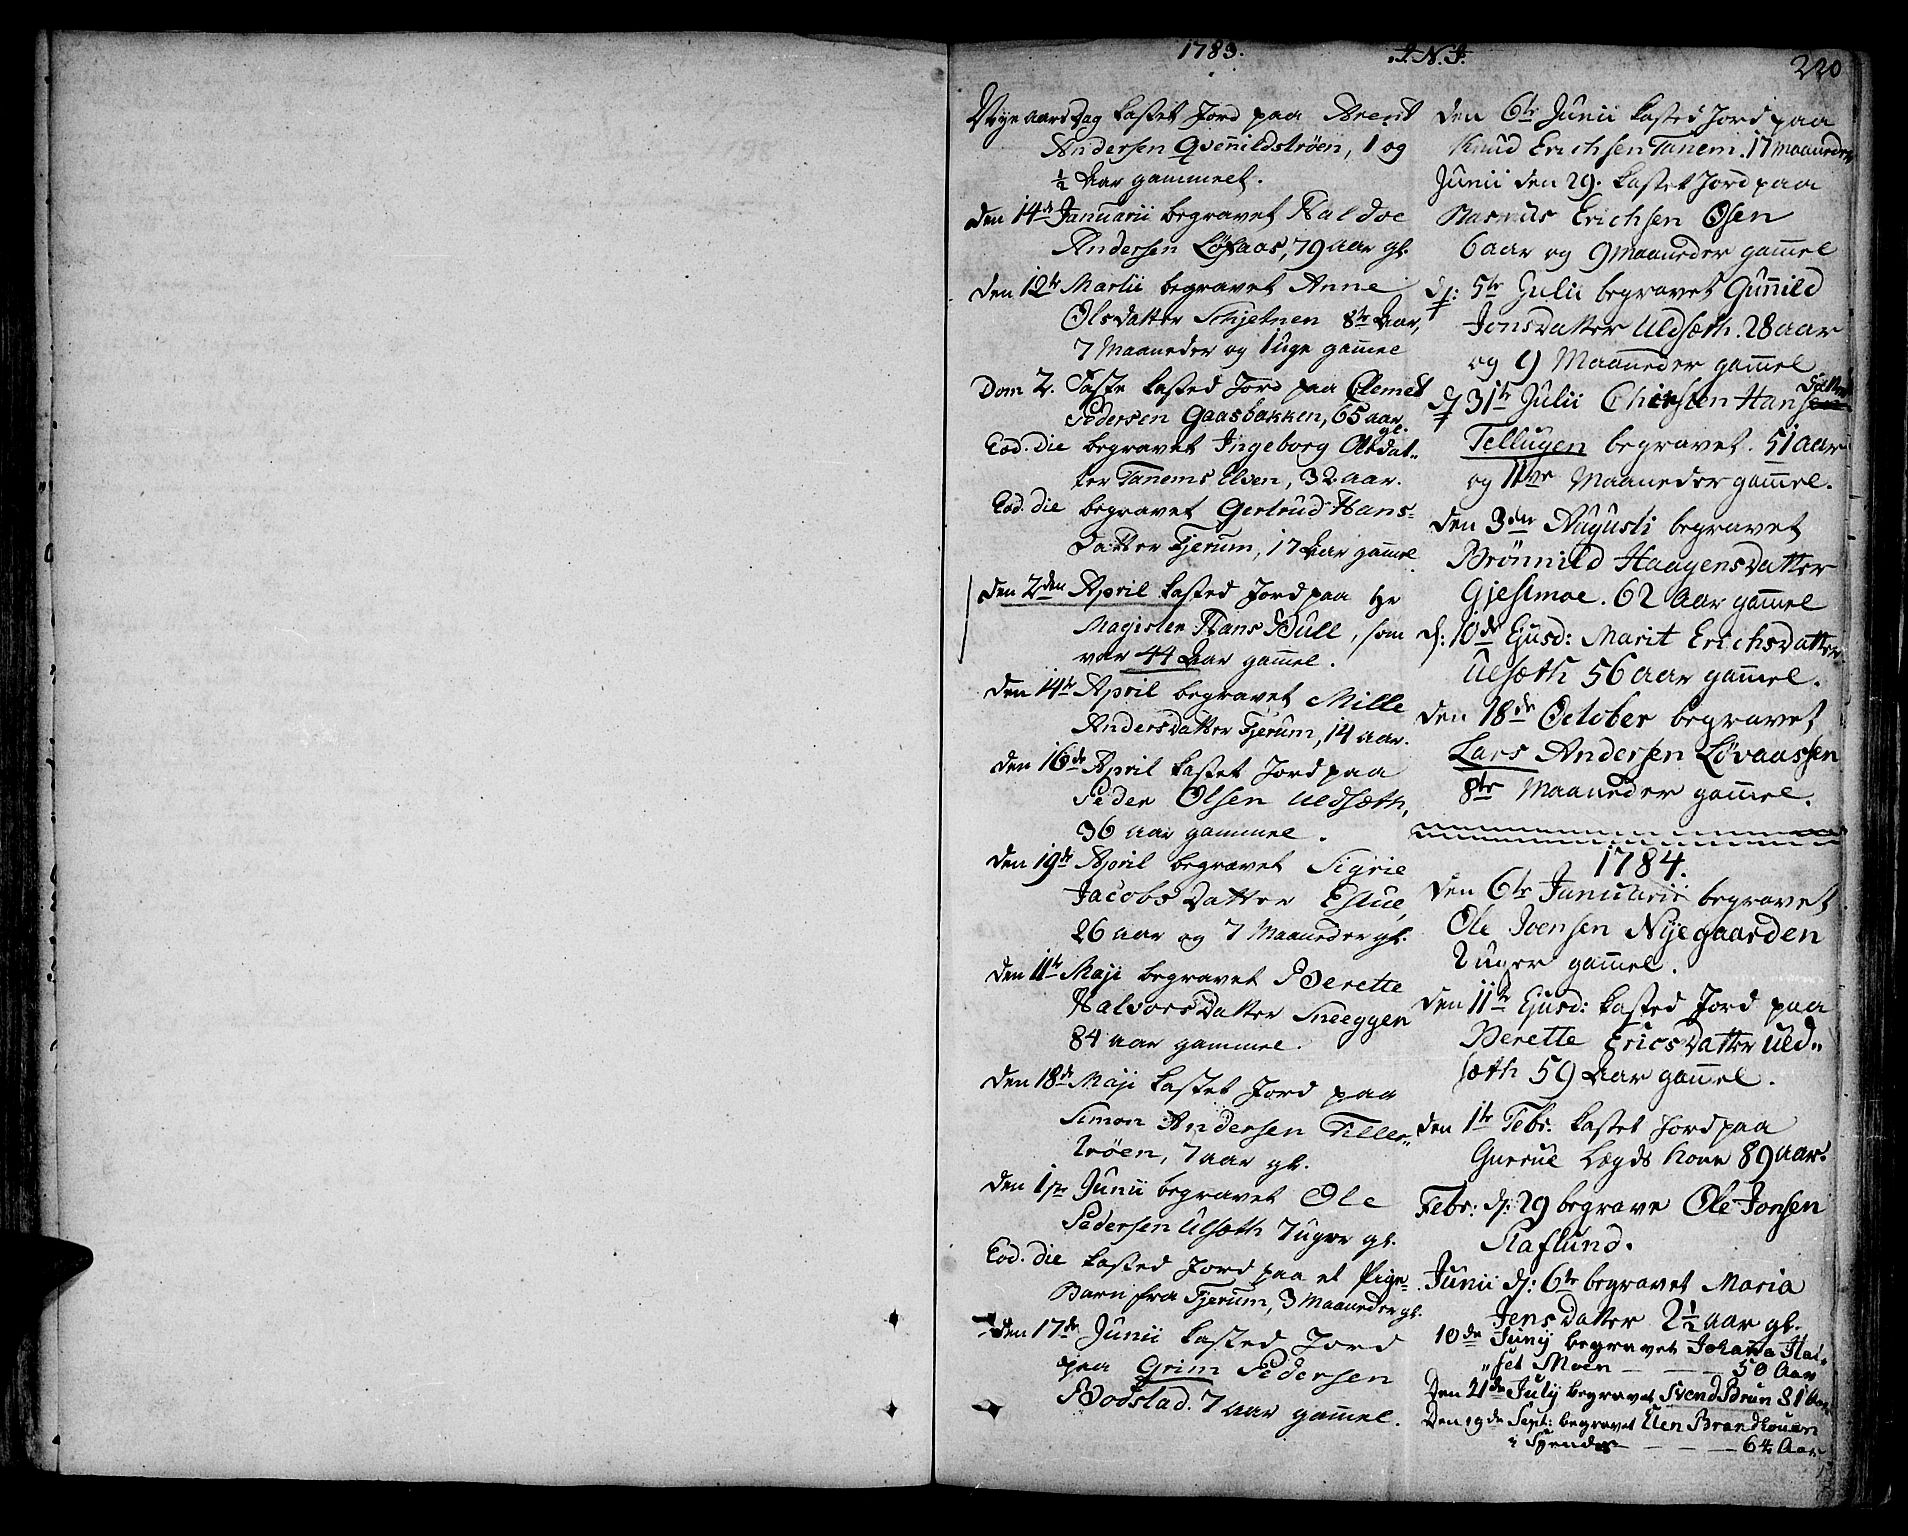 1783. J. N. J. 220
Nyeaarsdag kastet Jord paa Arent
Andersen Qvenildstrøen, 1 og
½ Aar gammelt.
den 14de Januarii begravet Haldoe
Andersen Løfaas, 79 aar gl.
den 12te Martii begravet Anne
Olsdatter Schjetnen 8te Aar,
7 Maaneder og 1 uge gam̄el
Dom 2. Faste kasted Jord paa Clemet
Pedersen Gaasbakken, 65 aar
gl.
Eod. die begravet Ingeborg Olsdat„
ter Tanems Elven, 32 aar.
Eod. die begravet Gertrud Hans-
Datter Tjerum, 17 Aar gam̄el.
den 2den April kasted Jord paa Hr
Magister Hans Bull, som
var 44 Aar gam̄el.
den 14de April begravet Mille
Andersdatter Tjerum, 14 aar.
den 16de April kastet Jord paa
Peder Olsen Uldsæth,
36 aar gammel.
den 19de April begravet Sigrie
Jacobsdatter Estue,
26 aar og 7 Maaneder gl.
den 11te Maji begravet Berette
Halvorsdatter Sneeggen
84 aar gammel.
den 18de Maji kastet Jord paa
Simon Andersen Tiller„
trøen, 7 aar gl.
den 1ste Junii begravet Ole
Pedersen Ulsæth 7 uger gl.
Eod. die kasted Jord paa et Pige-
Barn fra Tjerum, 3 Maaneder gl.
den 17de Junii kasted Jord
paa Grim Pedersen
Bodstad. 7 aar gam̄el.
den 6te Junii kasted Jord paa
Knud Erichsen Tanem. 17 maaneder
Junii den 29. kastet Jord paa
Rasmus Erichsen Osen
6 aar og 9 Maaneder gam̄el
d: 5te Julii begravet Gun̄ild
Jonsdatter Uldsæth. 28 aar
og 9 Maaneder gam̄el
d: 31te Julii Chirsten Hansen
datter
Tellugen begravet. 51 aar
og 11ve Maaneder gam̄el.
den 3die Augusti begravet
Brønnild Haagensdatter
Gjestmoe. 62 Aar gam̄el
d: 10de Ejusd: Marit Erichsdatter
Ulsæth 56 aar gam̄el.
den 18de October begravet
Lars Andersen Løvaassen
8te Maaneder gam̄el.
1784.
den 6te Januarii begravet
Ole Joensen Nyegaarden
2 uger gam̄el.
den 11te Ejusd: kasted Jord paa
Berette Ericsdatter Uld„
sæth 59 Aar gam̄el.
den 1te Febr. kastet Jord paa
Gurrue Lægds kone 89 aar.
Febr: d: 29 begrave Ole Jonsen
Staflund.
Junii d: 6te begravet Maria
Jensdatter 2½ aar gl.
10de Junij begravet Johan̄a Hal„
„set Moen — — 50 Aar
Den 21de July begravet Svend Brun 81 Aar
Den 19de Sept: begravet Elen Brandhouen
64 Aar